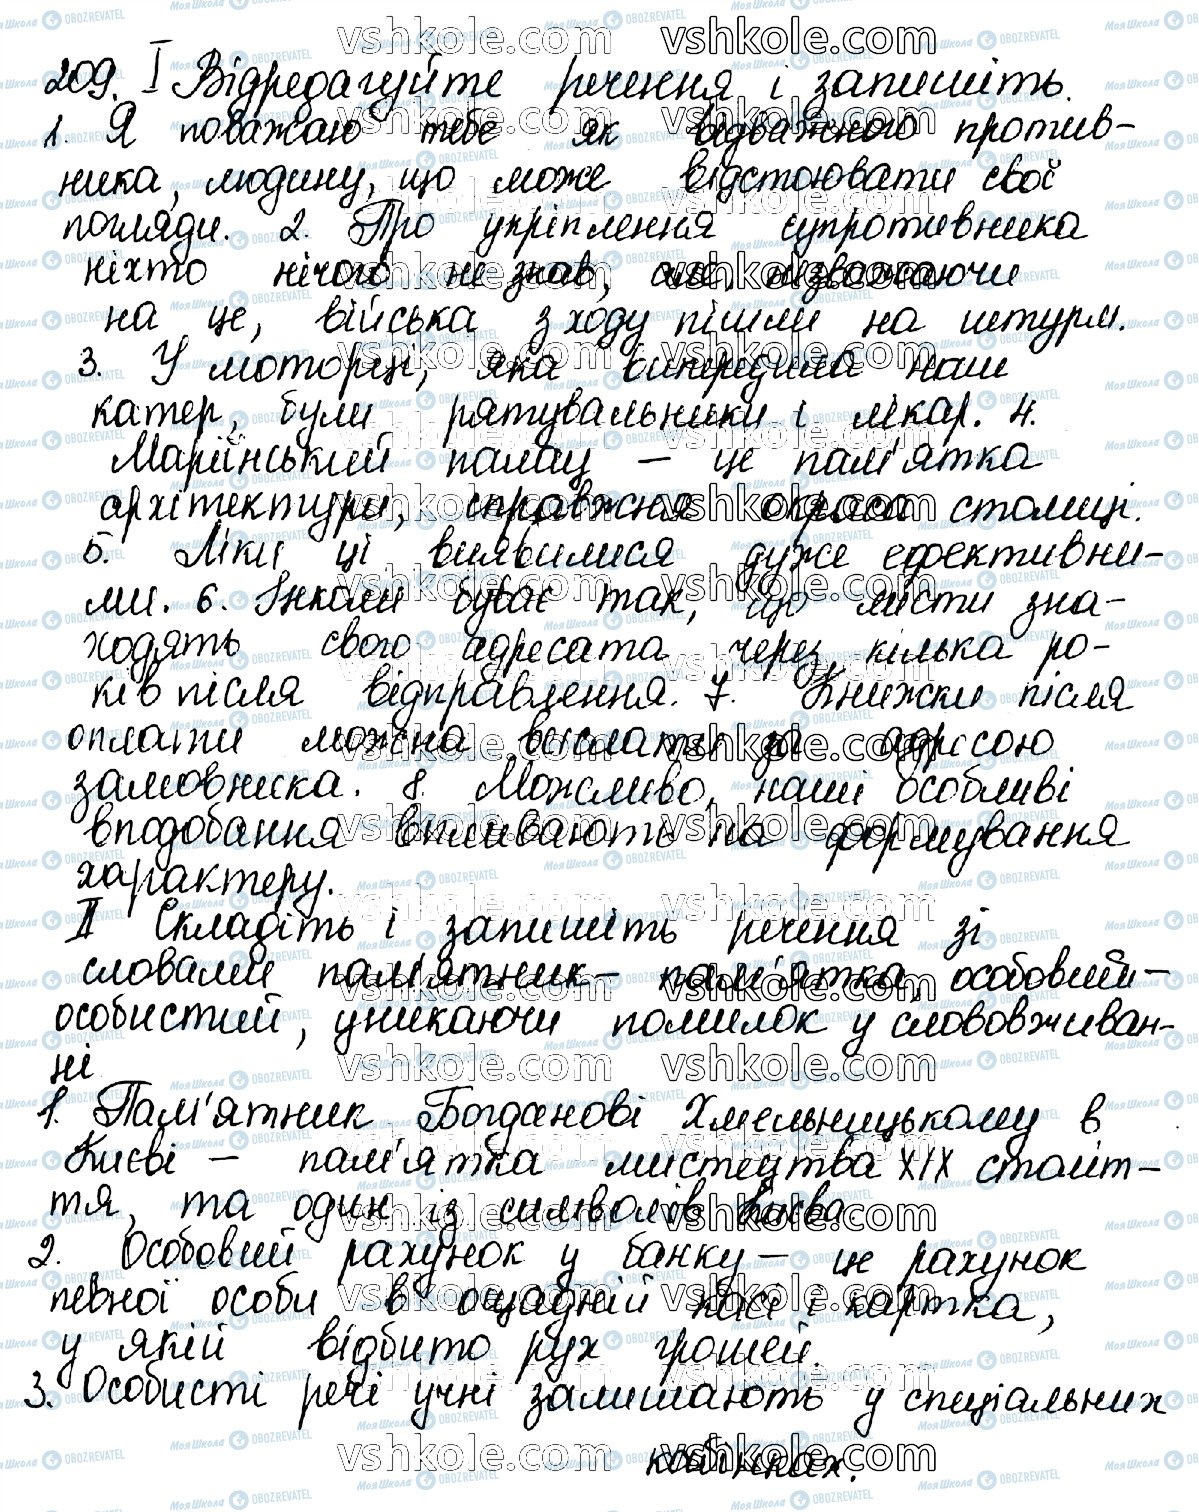 209. I Відредагуйте речення і запишіть.
1. Я поважаю тебе як відважного против-
ника, людину, що може відстоювати свої
погляди. 2. Про укріплення супротивника
ніхто нічого не знав, але, незважаючи
на це, війська з ходу пішли на штурм.
3. У моторці, яка випередила наш
катер, були рятувальники і лікар. 4.
Маріїнський палац – це пам'ятка
архітектури, справжня окраса столиці.
5. Ліки ці виявилися дуже ефективни-
ми. 6. Інколи буває так, що листи зна-
ходять свого адресата через кілька ро-
ків після відправлення. 7. Книжки після
оплати можна вислати за адресою
замовника. 8. Можливо, наші особливі
вподобання впливають на формування
характеру.
II Складіть і запишіть речення зі
словами пам'ятник – пам'ятка, особовий –
особистий, уникаючи помилок у слововживан-
ні
1. Пам'ятник Богданові Хмельницькому в
Києві – пам'ятка мистецтва XIX століт-
тя, та один із символів Києва
2. Особовий рахунок у банку – це рахунок
певної особи в ощадній касі і картка,
у якій відбито рух грошей.
3. Особисті речі учні залишають у спеціальних
кабінках.